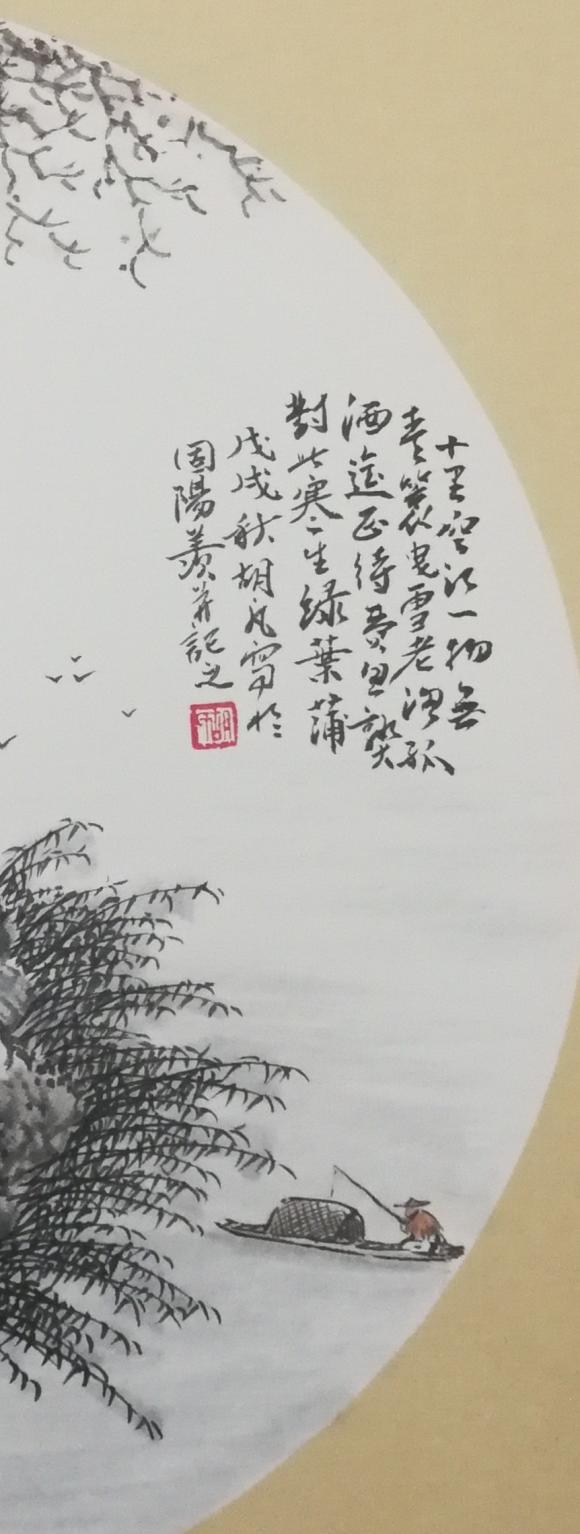 十里空江一物無
青蓑曳雪老漁孤
洒邊正待賣魚謷
對此寒々生綠葉蒲
戊戌秋胡凡寫於
固陽美并記之